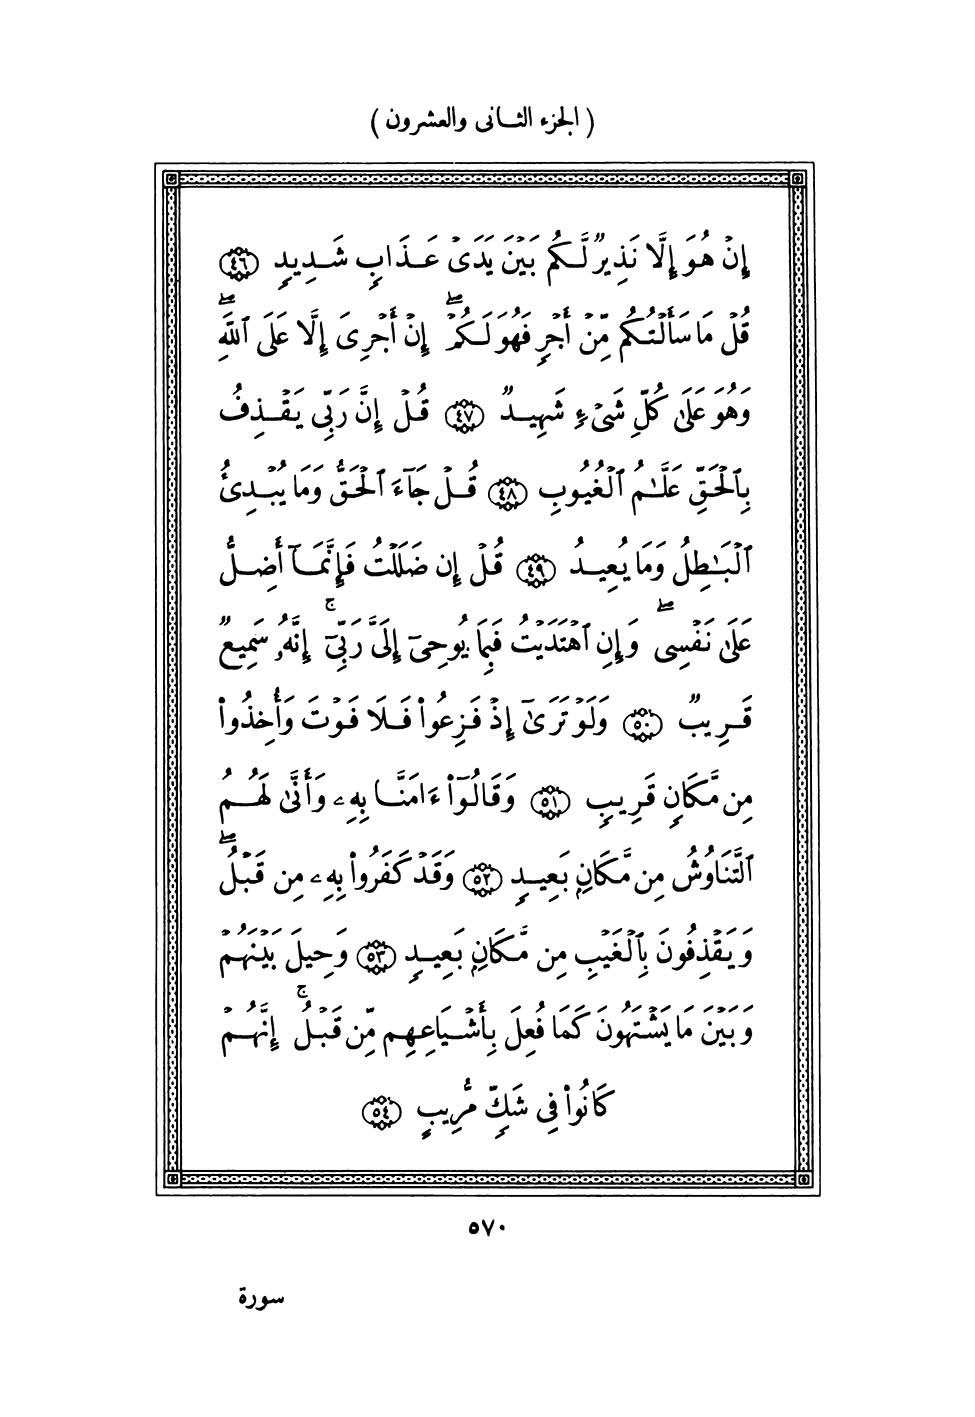 ( الجزء الثانى والعشرون )
إِنْ هُوَ إِلَّا نَذِيرٌ لَّكُم بَيْنَ يَدَىْ عَذَابٍ شَدِيدٍ ﴿٤٦﴾
قُلْ مَا سَأَلْتُكُم مِّنْ أَجْرٍ فَهُوَ لَكُمْ ۖ إِنْ أَجْرِىَ إِلَّا عَلَى ٱللَّهِ ۖ
وَهُوَ عَلَىٰ كُلِّ شَىْءٍ شَهِيدٌ ﴿٤٧﴾ قُلْ إِنَّ رَبِّى يَقْذِفُ
بِٱلْحَقِّ عَلَّـٰمُ ٱلْغُيُوبِ ﴿٤٨﴾ قُلْ جَآءَ ٱلْحَقُّ وَمَا يُبْدِئُ
ٱلْبَـٰطِلُ وَمَا يُعِيدُ ﴿٤٩﴾ قُلْ إِن ضَلَلْتُ فَإِنَّمَآ أَضِلُّ
عَلَىٰ نَفْسِى ۖ وَإِنِ ٱهْتَدَيْتُ فَبِمَا يُوحِىٓ إِلَىَّ رَبِّىٓ ۚ إِنَّهُۥ سَمِيعٌ
قَرِيبٌ ﴿٥٠﴾ وَلَوْ تَرَىٰٓ إِذْ فَزِعُوا۟ فَلَا فَوْتَ وَأُخِذُوا۟
مِن مَّكَانٍ قَرِيبٍ ﴿٥١﴾ وَقَالُوٓا۟ ءَامَنَّا بِهِۦ وَأَنَّىٰ لَهُمُ
ٱلتَّنَاوُشُ مِن مَّكَانٍۭ بَعِيدٍ ﴿٥٢﴾ وَقَدْ كَفَرُوا۟ بِهِۦ مِن قَبْلُ ۖ
وَيَقْذِفُونَ بِٱلْغَيْبِ مِن مَّكَانٍۭ بَعِيدٍ ﴿٥٣﴾ وَحِيلَ بَيْنَهُمْ
وَبَيْنَ مَا يَشْتَهُونَ كَمَا فُعِلَ بِأَشْيَاعِهِم مِّن قَبْلُ ۚ إِنَّهُمْ
كَانُوا۟ فِى شَكٍّ مُّرِيبٍ ﴿٥٤﴾
٥٧٠
سورة